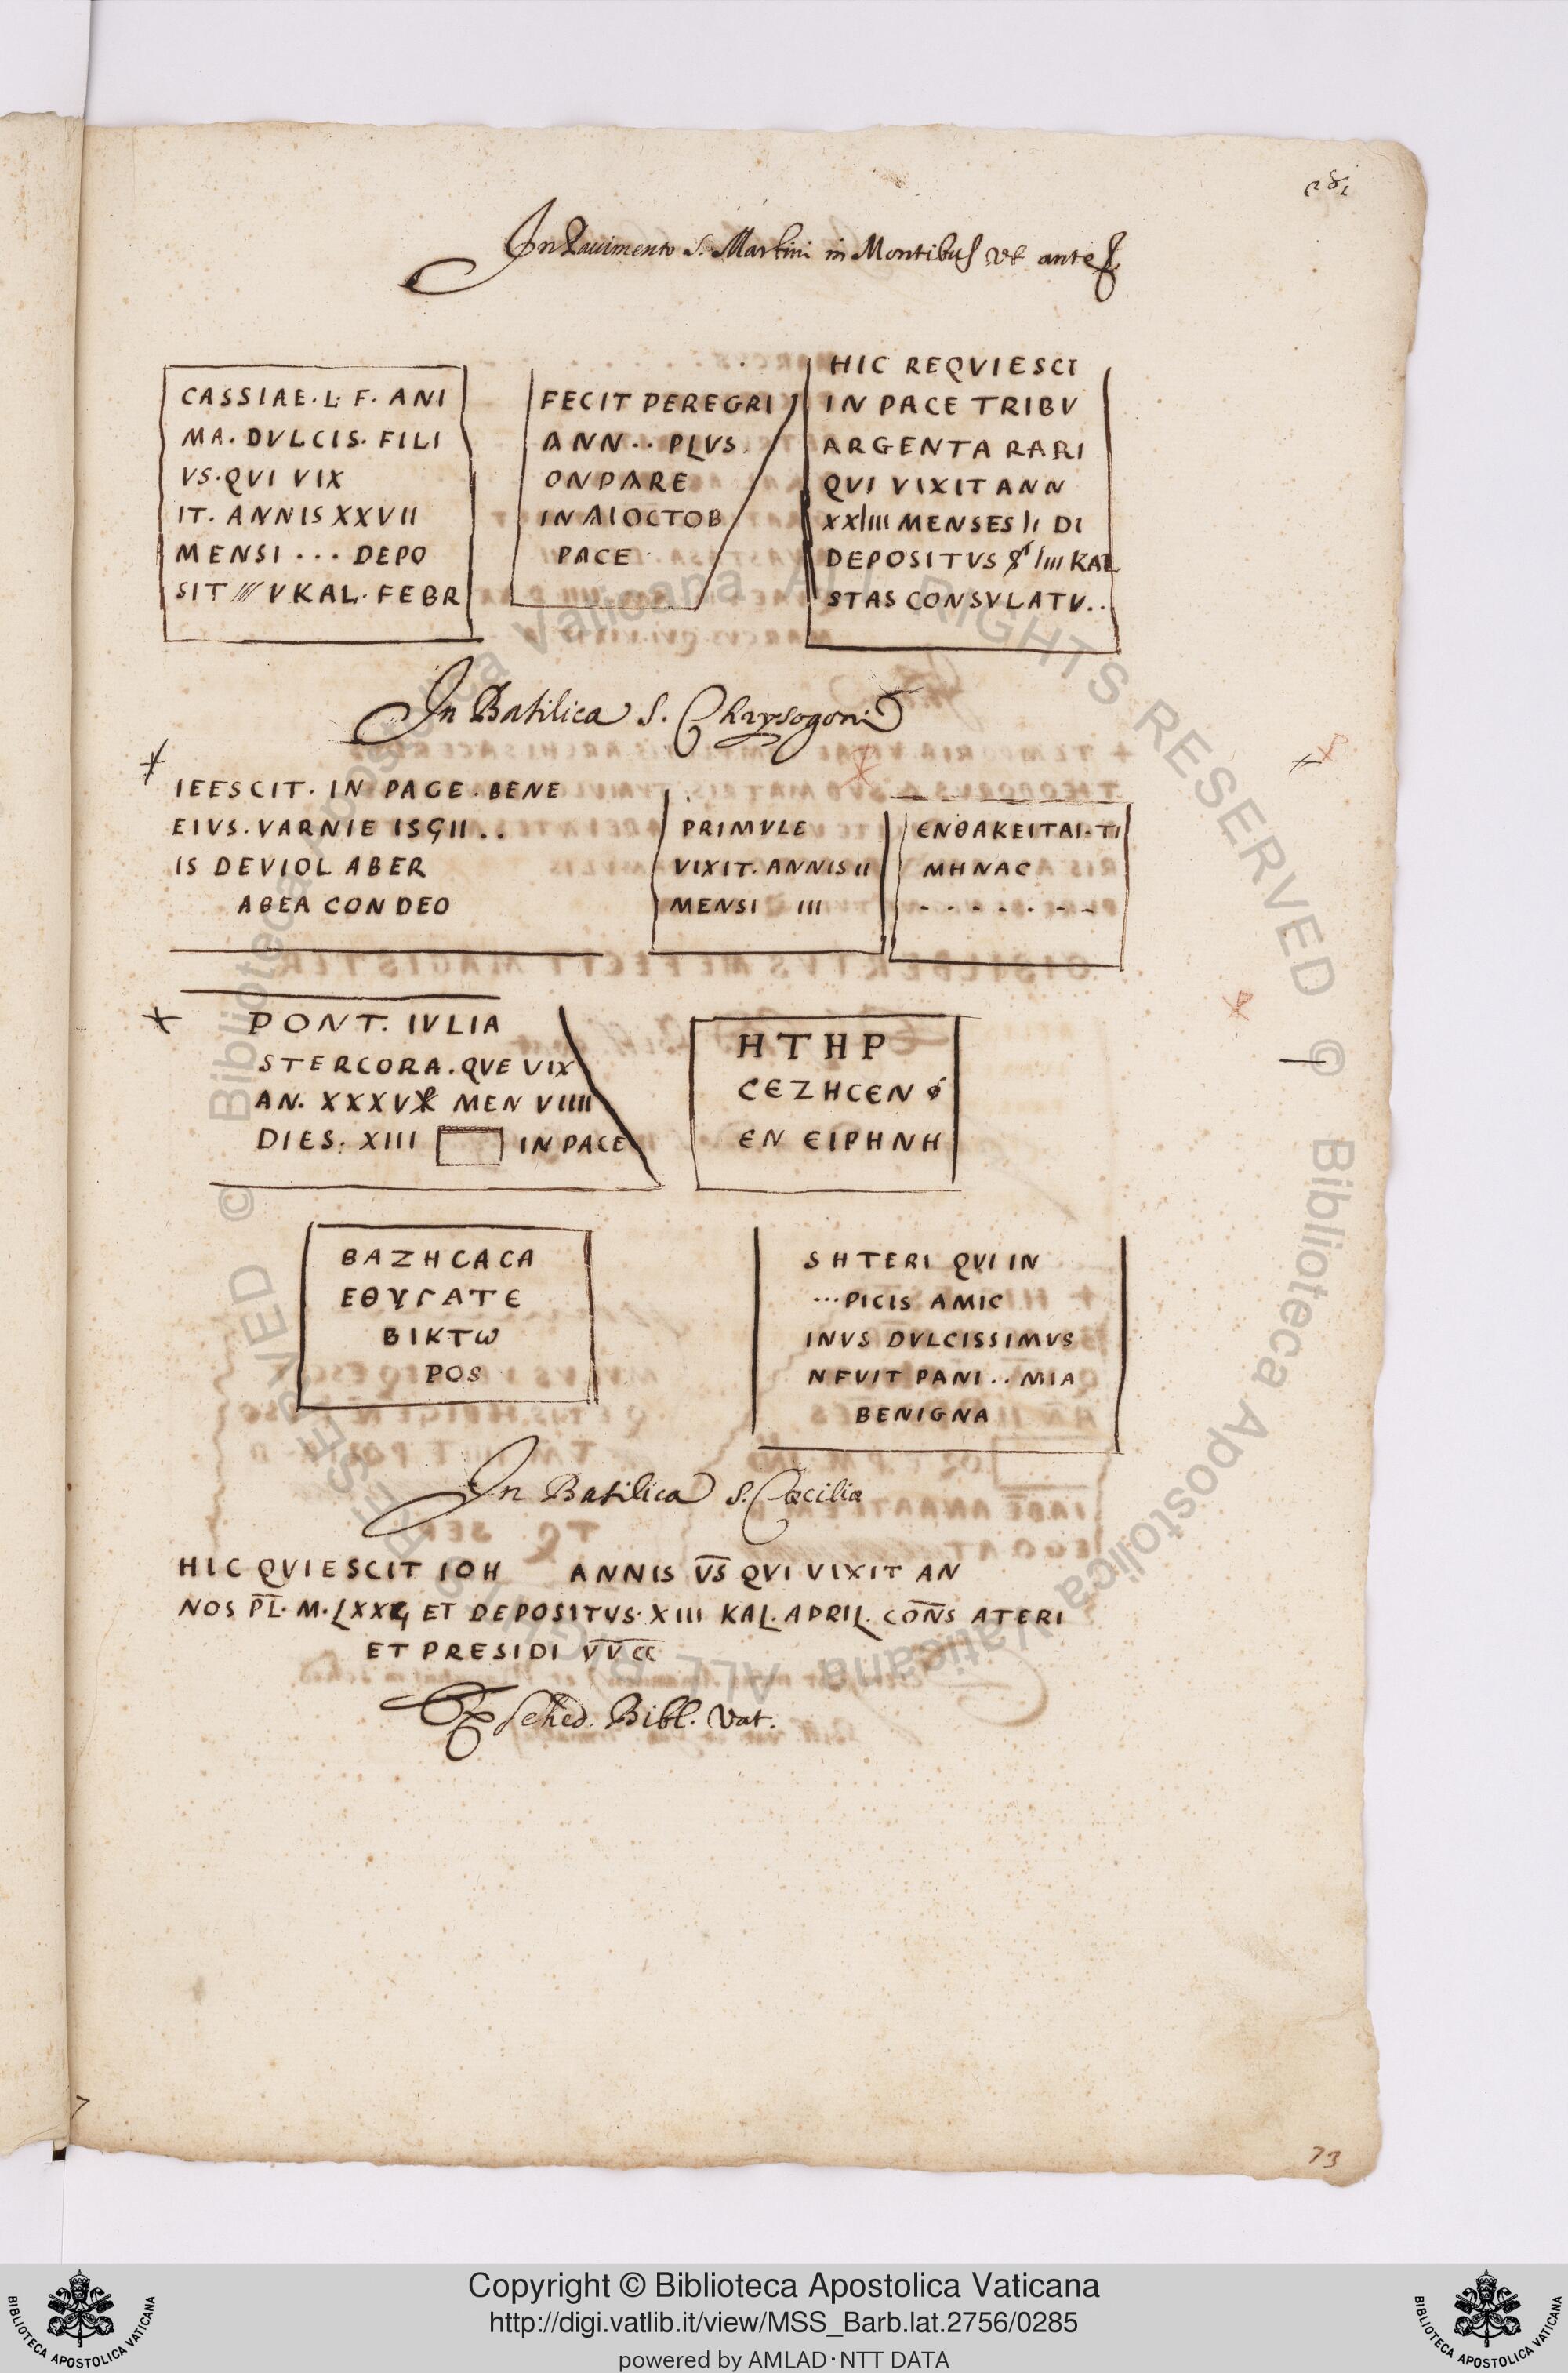 281
In Pauimento S. Martini in Montibus ut ante
CASSIAE. L. F. ANI
MA. DVLCIS. FILI
VS. QVI VIX
IT. ANNIS XXVII
MENSI . . . DEPO
SIT /// V KAL. FEBR
FECIT PEREGRI
ANN . . PLVS
ONPARE
IN ΛIOCTOB
PACE
HIC REQVIESCI
IN PACE TRIBV
ARGENTA RARI
QVI VIXIT ANN
XXIIII MENSES II DI
DEPOSITVS IIII KAL
STAS CONSVLATV . .
In Basilica S. Chrysogoni
IEESCIT. IN PAGE. BENE
EIVS. VARNIE ISGII . .
IS DEVIOL ABER
ABEA CON DEO
PRIMVLE
VIXIT. ANNIS II
MENSI III
ΕΝΘΑΚΕΙΤΑΙ. ΤΙ
ΜΗΝΑC
- - - - - - -
PONT. IVLIA
STERCORA. QVE VIX
AN. XXXV MEN VIIII
DIES. XIII IN PACE
ΗΤΗΡ
CΕΖΗCΕΝ
ΕΝ ΕΙΡΗΝΗ
ΒΑΖΗCΑCΑ
ΕΘΥΓΑΤΕ
ΒΙΚΤω
POS
SHTERI QVI IN
... PICIS AMIC
INVS DVLCISSIMVS
NFVIT PANI . . MIA
BENIGNA
In Basilica S. Cæcilia
HIC QVIESCIT IOH ANNIS V̅S̅ QVI VIXIT AN
NOS P̅L̅. M. ET DEPOSITVS. XIII KAL. APRIL. CON̅S ATERI
ET PRESIDI V̅V̅ C̅C̅
Ex sched. Bibl. Vat.
73
Copyright © Biblioteca Apostolica Vaticana
http://digi.vatlib.it/view/MSS_Barb.lat.2756/0285
powered by AMLAD·NTT DATA
BIBLIOTECA APOSTOLICA VATICANA
BIBLIOTECA APOSTOLICA VATICANA
© Biblioteca Apostolica Vaticana ALL RIGHTS RESERVED © Biblioteca Apostolica Vaticana ALL RIGHTS RESERVED